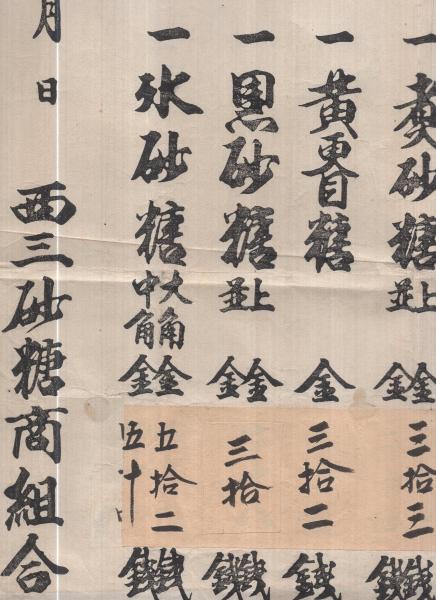 一 砂糖 上 並 金 金 三拾三 銭 銭
一 黄 目糖 金 三拾二 銭
一 黒砂糖 上 並 金 金 三拾 銭 銭
一 氷砂糖 大角 中角 金 金 五拾二 五十 銭 銭
月 日 西三砂糖商組合